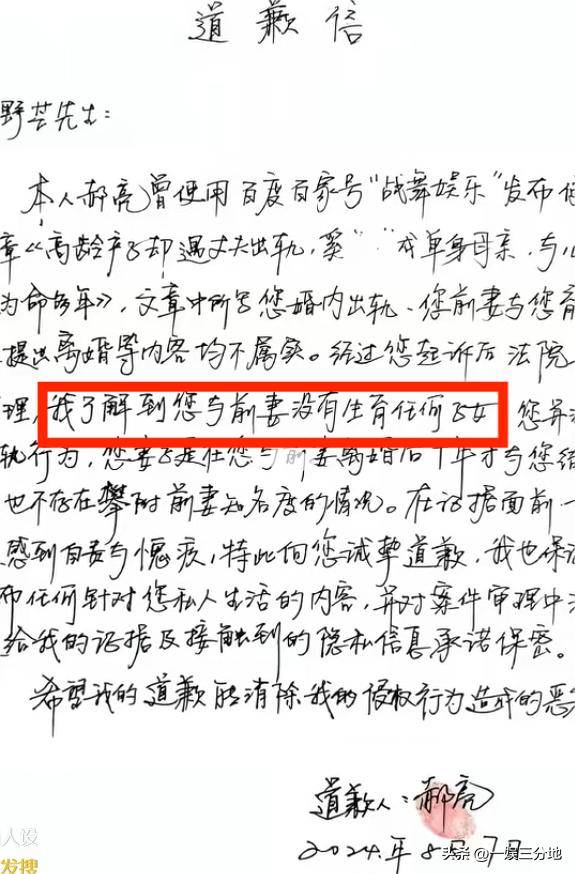 道歉信
野芒先生：
本人郝亮曾使用百度百家号“战舞娱乐”发布
章《高龄产子却遇丈夫出轨，奚“ ”成单身母亲，与儿
为命多年》，文章中所写您婚内出轨、您前妻与您育
提出离婚等内容均不属实。经过您起诉后法院
理，我了解到您与前妻没有生育任何子女 您并没
轨行为，您妻子是在您与前妻离婚后十年才与您结
也不存在攀附前妻知名度的情况。在证据面前一
感到自责与愧疚，特此向您诚挚道歉，我也保证
布任何针对您私人生活的内容，并对案件审理中
给我的证据及接触到的隐私信息承诺保密。
希望我的道歉能消除我的侵权行为造成的恶
道歉人：郝亮
2024年8月7日
人设
发搜
头条 @一娱三分地